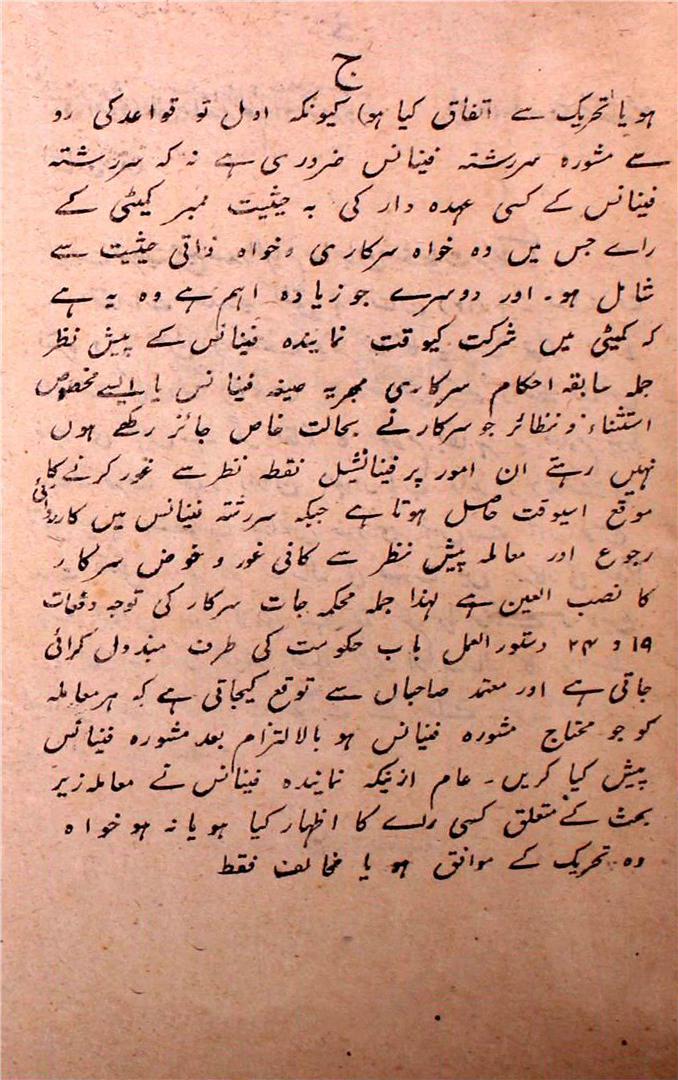 ج
ہو یا تحریک سے اتفاق کیا ہو) کیونکہ اول تو قواعد کی رو
سے مشورہ سررشتہ فینانس ضروری ہے نہ کہ سررشتہ
فینانس کے کسی عہدہ دار کی بہ حیثیت ممبر کمیٹی کے
راے جس میں وہ خواہ سرکاری وخواہ ذاتی حیثیت سے
شامل ہو۔ اور دوسرے جو زیادہ اہم ہے وہ یہ ہے
کہ کمیٹی میں شرکت کیوقت نمایندہ فینانس کے پیش نظر
جملہ سابقہ احکام سرکاری مجریہ صیغہ فینانس یا ایسے مخصوص
استثناء و نظائر جو سرکار نے بحالت خاص جائز رکھے ہوں
نہیں رہتے ان امور پر فینانشیل نقطہ نظر سے غور کرنے کا
موقع اسیوقت حاصل ہوتا ہے جبکہ سررشتہ فینانس میں کاروائی
رجوع اور معاملہ پیش نظر سے کافی غور و غوض سرکار
کا نصب العین ہے لہذا جملہ محکمہ جات سرکار کی توجہ دفعات
۱۹ و ۲۴ دستورالعمل باب حکومت کی طرف مبذول کرائی
جاتی ہے اور معتمد صاحبان سے توقع کیجاتی ہے کہ ہر معاملہ
کو جو محتاج مشورہ فینانس ہو بالالتزام بعد مشورہ فینانس
پیش کیا کریں۔ عام ازینکہ نمایندہ فینانس نے معاملہ زیر
بحث کے متعلق کسی راے کا اظہار کیا ہو یا نہ ہو خواہ
وہ تحریک کے موافق ہو یا مخالف فقط